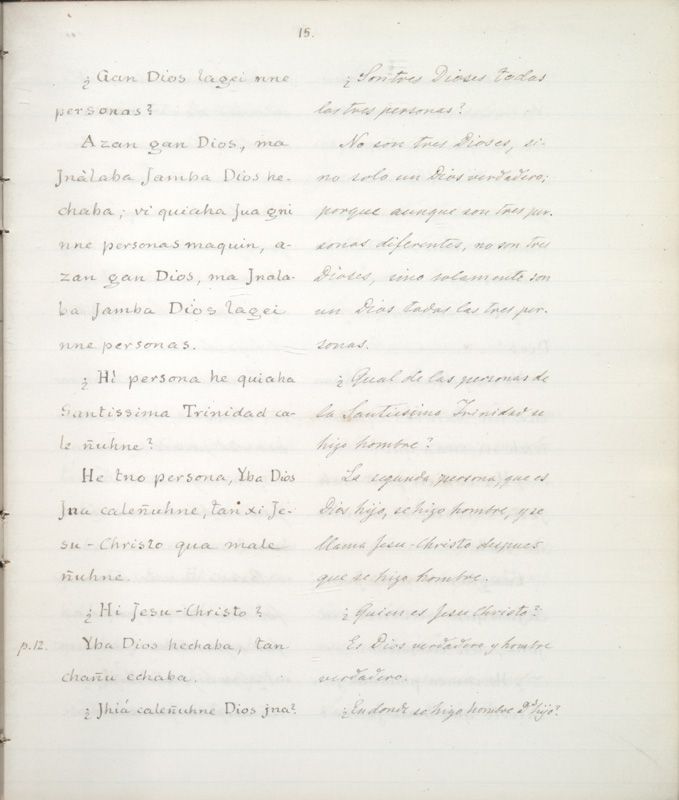 15.
¿ Gan Dios lagei nne
personas?
Azan gan Dios, ma
Jnàlaba Jamba Dios he-
chaba; vi quiaha Jua gni
nne personas maquin, a-
zan gan Dios, ma Jnala-
ba Jamba Dios lagei
nne personas.
¿ Hi persona he quiaha
Santissima Trinidad ca-
le ñuhne?
He tno persona, Yba Dios
Jna caleñuhne, tan xi Je-
su-Christo qua male
ñuhne.
¿ Hi Jesu-Christo?
p.12. Yba Dios hechaba, tan
chañu echaba.
¿ Jhiá caleñuhne Dios jna?
¿ Son tres Dioses todas
las tres personas?
No son tres Dioses, si-
no solo un Dios verdadero;
porque aunque son tres per-
sonas diferentes, no son tres
Dioses, sino solamente son
un Dios todas las tres per-
sonas.
¿ Qual de las personas de
la Santissima Trinidad se
hizo hombre?
La segunda persona, que es
Dios hijo, se hizo hombre, y se
llama Jesu-Christo despues
que se hizo hombre.
¿ Quien es Jesu Christo?
Es Dios verdadero y hombre
verdadero.
¿ En donde se hizo hombre Ds hijo?